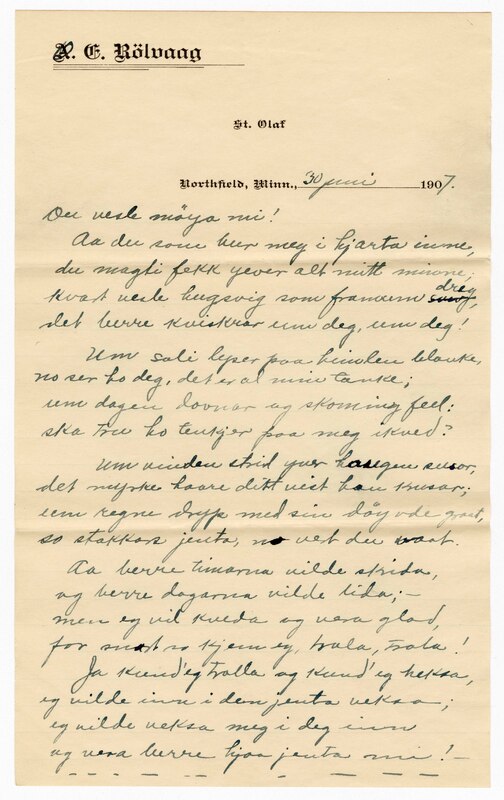 O. E. Rölvaag
St. Olaf
Northfield, Minn., 30 juni 1907.
Du vesle möya mi!
Aa du som bur meg i hjarta inne,
du magti fekk yver alt mitt minne;
kvart vesle hugsvig som framum dreg,
det berre kviskrar um deg, um deg!
Um soli lyser paa himlen blanke,
no ser ho deg, det er al min tanke;
um dagen dovnar og skoming feel:
ska tru ho tenkjer paa meg ikved?
Um vinden strid yver haugen susar,
det myrke haare ditt vist han krusar;
um regne dryp med sin döyvde graat,
so stakkars jenta, no vert du vaat.
Aa berre timarna vilde strida,
og berre dagarna vilde lida;—
men eg vil kveda og vera glad,
for snart so kjem eg, trala, trala!
Ja kund' eg tralla og kund' eg heksa,
eg vilde inn i den jenta veksa;
eg vilde veksa meg i deg inn
og vera berre hjaa jenta mi!—